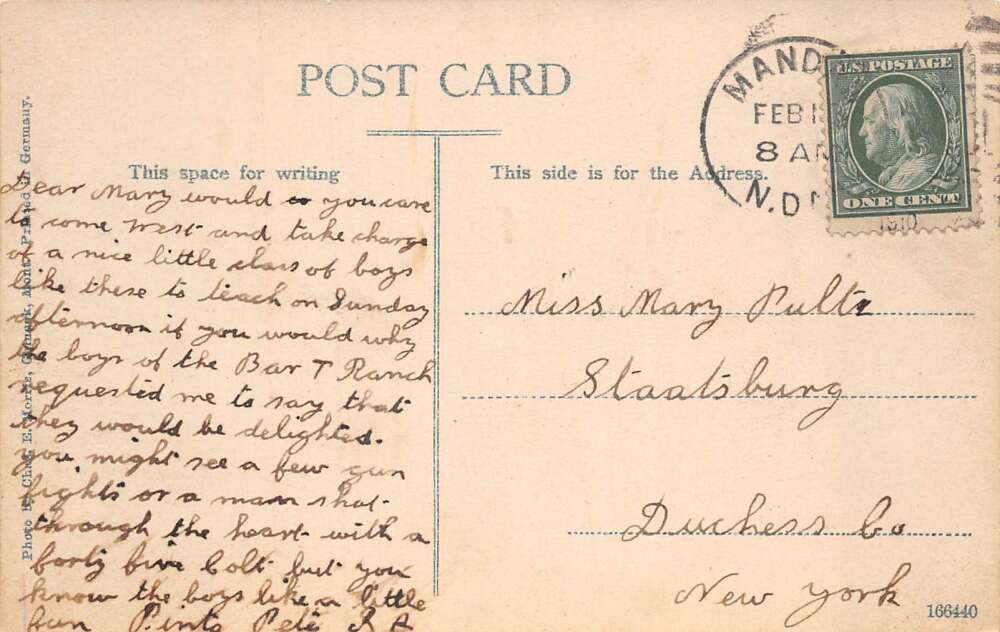 POST CARD
This space for writing
This side is for the Address.
Dear Mary would you care
to come west and take charge
of a nice little class of boys
like these to teach on Sunday
afternoon if you would why
the boys of the Bar T Ranch
requested me to say that
they would be delighted.
you might see a few gun
fights or a man shot
through the heart with a
forty five Colt but you
know the boys like a little
fun Pinto Pete
Miss Mary
Staatsburg
Duchess Co
New York
MAND
FEB 1
8 AM
N.D
1910
U.S. POSTAGE
ONE CENT
Photo by Chas. E. Morris, Chinook, Mont. Printed in Germany.
166440